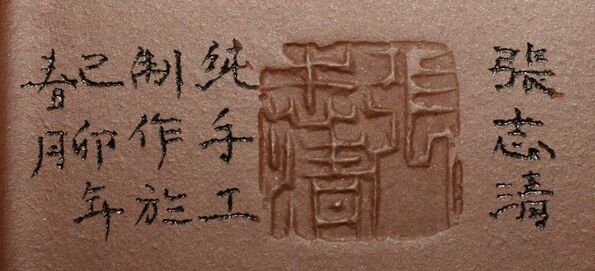 張志清
張志清
純手工
制作於
己卯年
春月